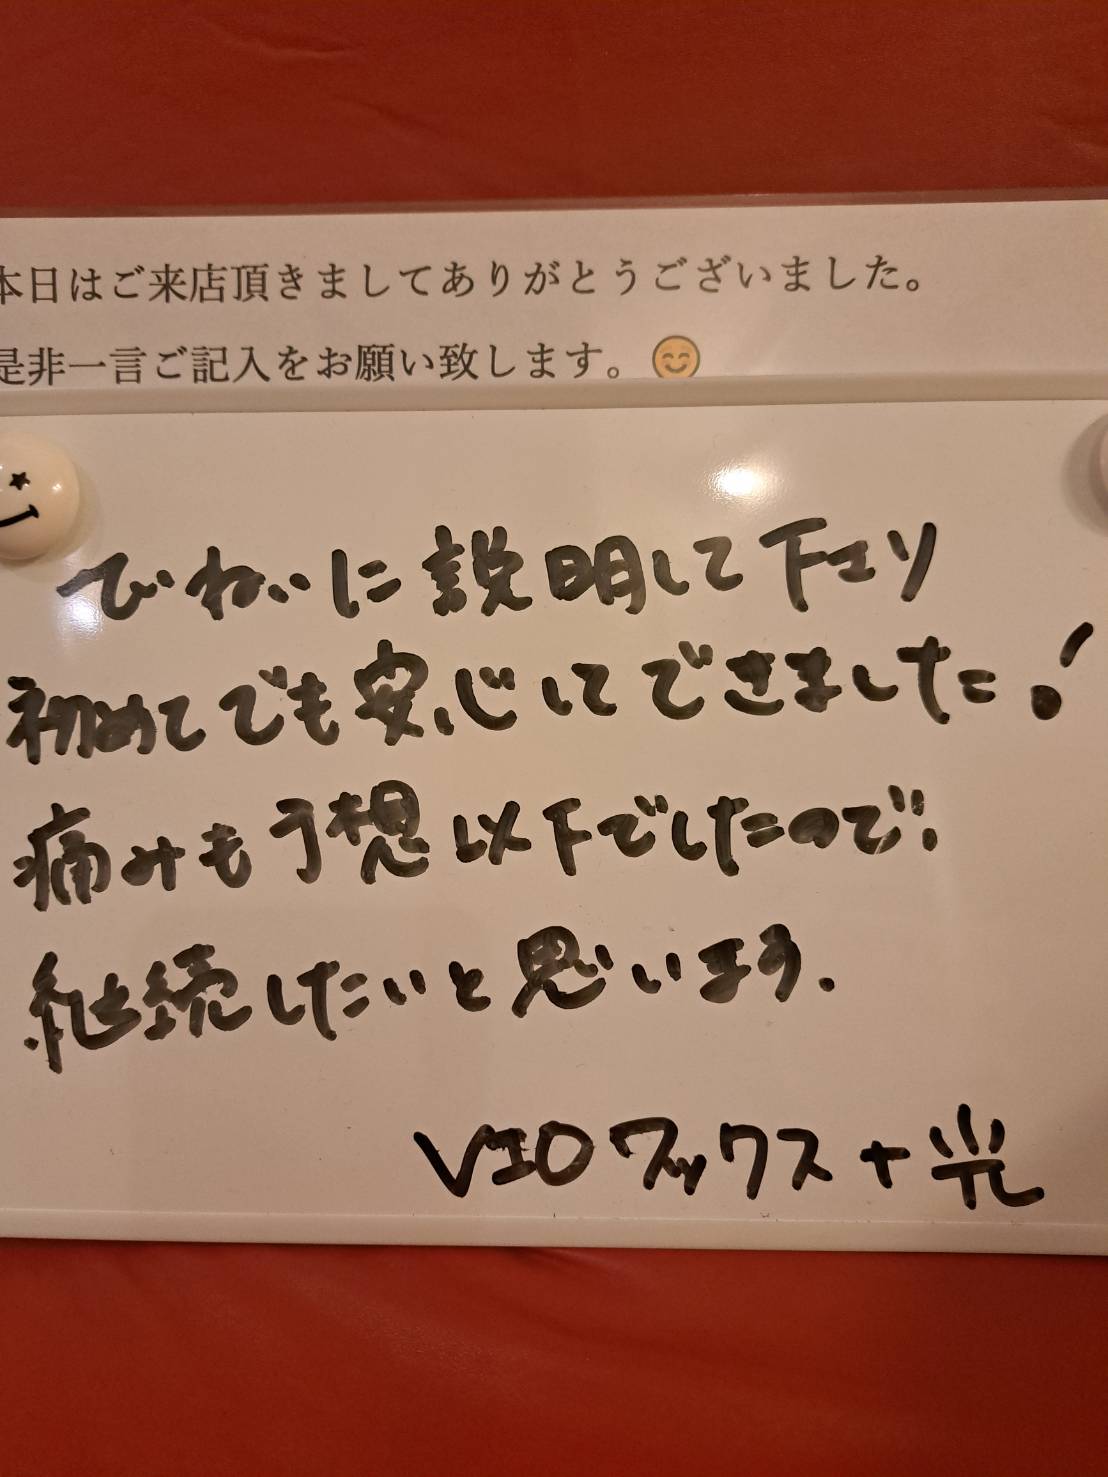 本日はご来店頂きましてありがとうございました。
是非一言ご記入をお願い致します。😊
ていねいに説明して下エリ
初めてでも安心じてできました!
痛みも予想以下でしたので、
継続したいと思います.
VIO ワックス + 光